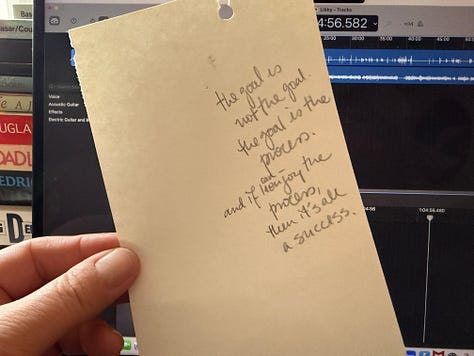 the goal is
not the goal.
the goal is the
process.
can
and if I enjoy the
process,
then it's all
a success.
Libby - Tracks
4:56.582
Voice
Acoustic Guitar
Effects
Electric Guitar and
1:04:56.480
DOUGLA